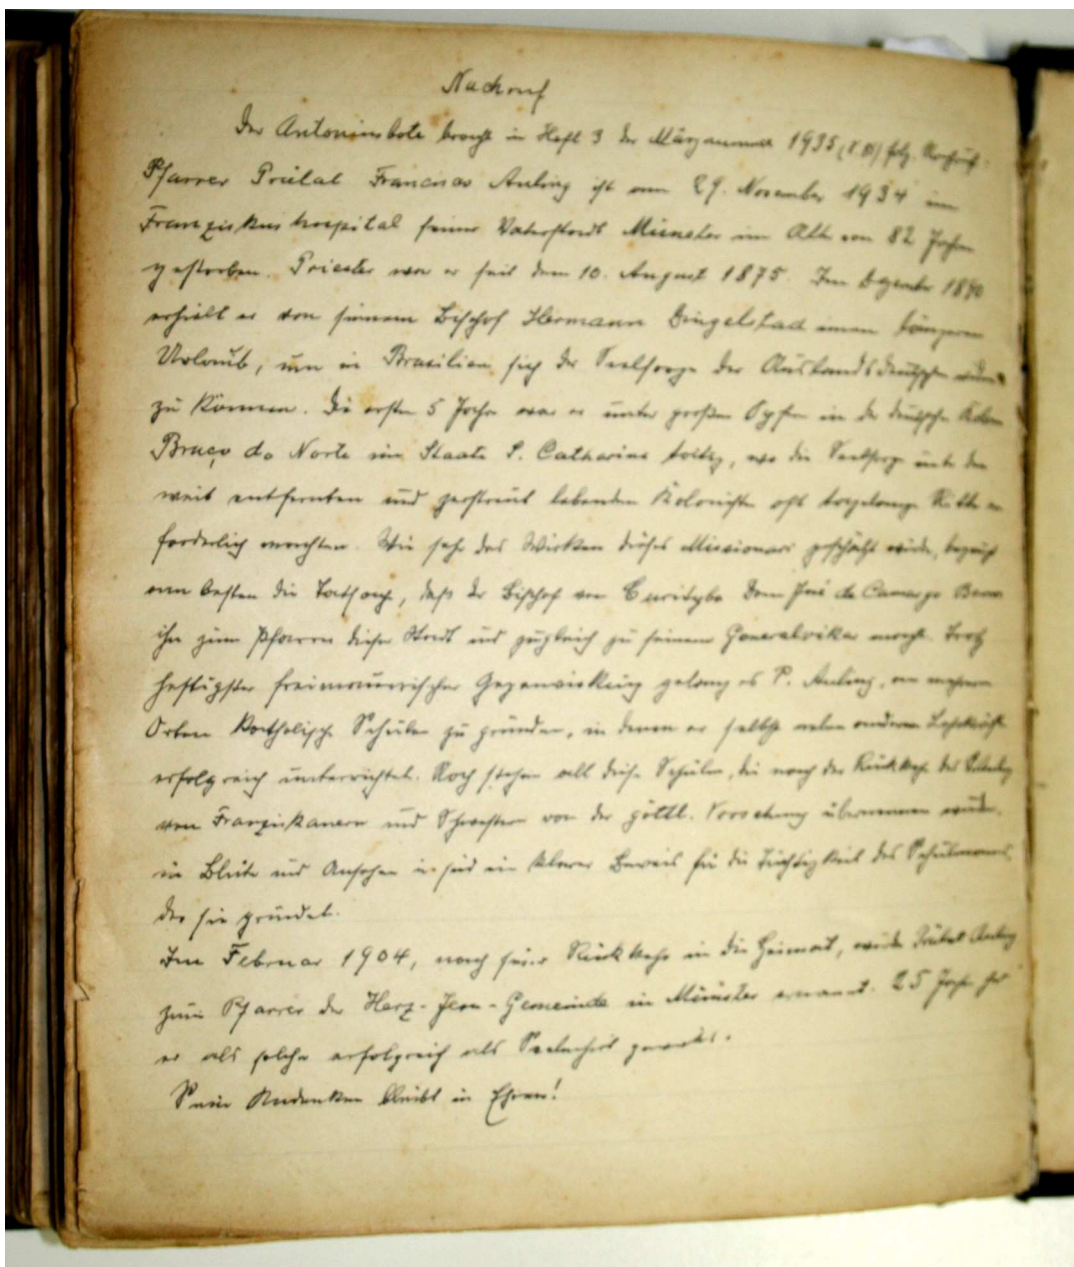 Nachruf
Der Antoniusbote bracht in Heft 3 der Märznummer 1935 folg. Nachruf:
Pfarrer Prälat Franciscus Auling ist am 29. November 1934 im
Franziskushospital seiner Vaterstadt Münster im Alter von 82 Jahren
gestorben. Priester war er seit dem 10. August 1875. Im Dezember 1890
erhielt er von seinem Bischof Hermann Dingelstad einen längeren
Urlaub, um in Brasilien sich der Seelsorge der Auslandsdeutschen
zu können. Die ersten 5 Jahre war er unter großen Opfern in der deutschen Kolonie
Braço do Norte im Staate S. Catharina tätig, wo die Seelsorge unter den
weit entfernten und zerstreut lebenden Kolonisten oft tagelange Ritte er
forderlich machten. Wie sehr das Wirken dieses Missionars geschätzt wurde, bezeugt
am besten die Tatsache, daß der Bischof von Curityba Dom José de Camargo Barros
ihn zum Pfarrer dieser Stadt und zugleich zu seinem Generalvikar macht. Trotz
heftigster freimaurerischer Gegenwirkung gelang es P. Auling, an mehreren
Orten katholische Schulen zu gründen, in denen er selbst neben anderen Lehrkräften
erfolgreich unterrichtet. Noch stehen all diese Schulen, die nach der Rückkehr des Prälaten
von Franziskanern und Schwestern von der göttl. Vorsehung übernommen wurden,
in Blüte und Ansehen u. sind ein klarer Beweis für die Tüchtigkeit des Schulmannes,
der sie gründet.
Im Februar 1904, nach seiner Rückkehr in die Heimat, wurde Prälat Auling
zum Pfarrer der Herz-Jesu-Gemeinde in Münster ernannt. 25 Jahre hat
er als solcher erfolgreich als Seelenhirt gewirkt.
Sein Andenken bleibt in Ehren!